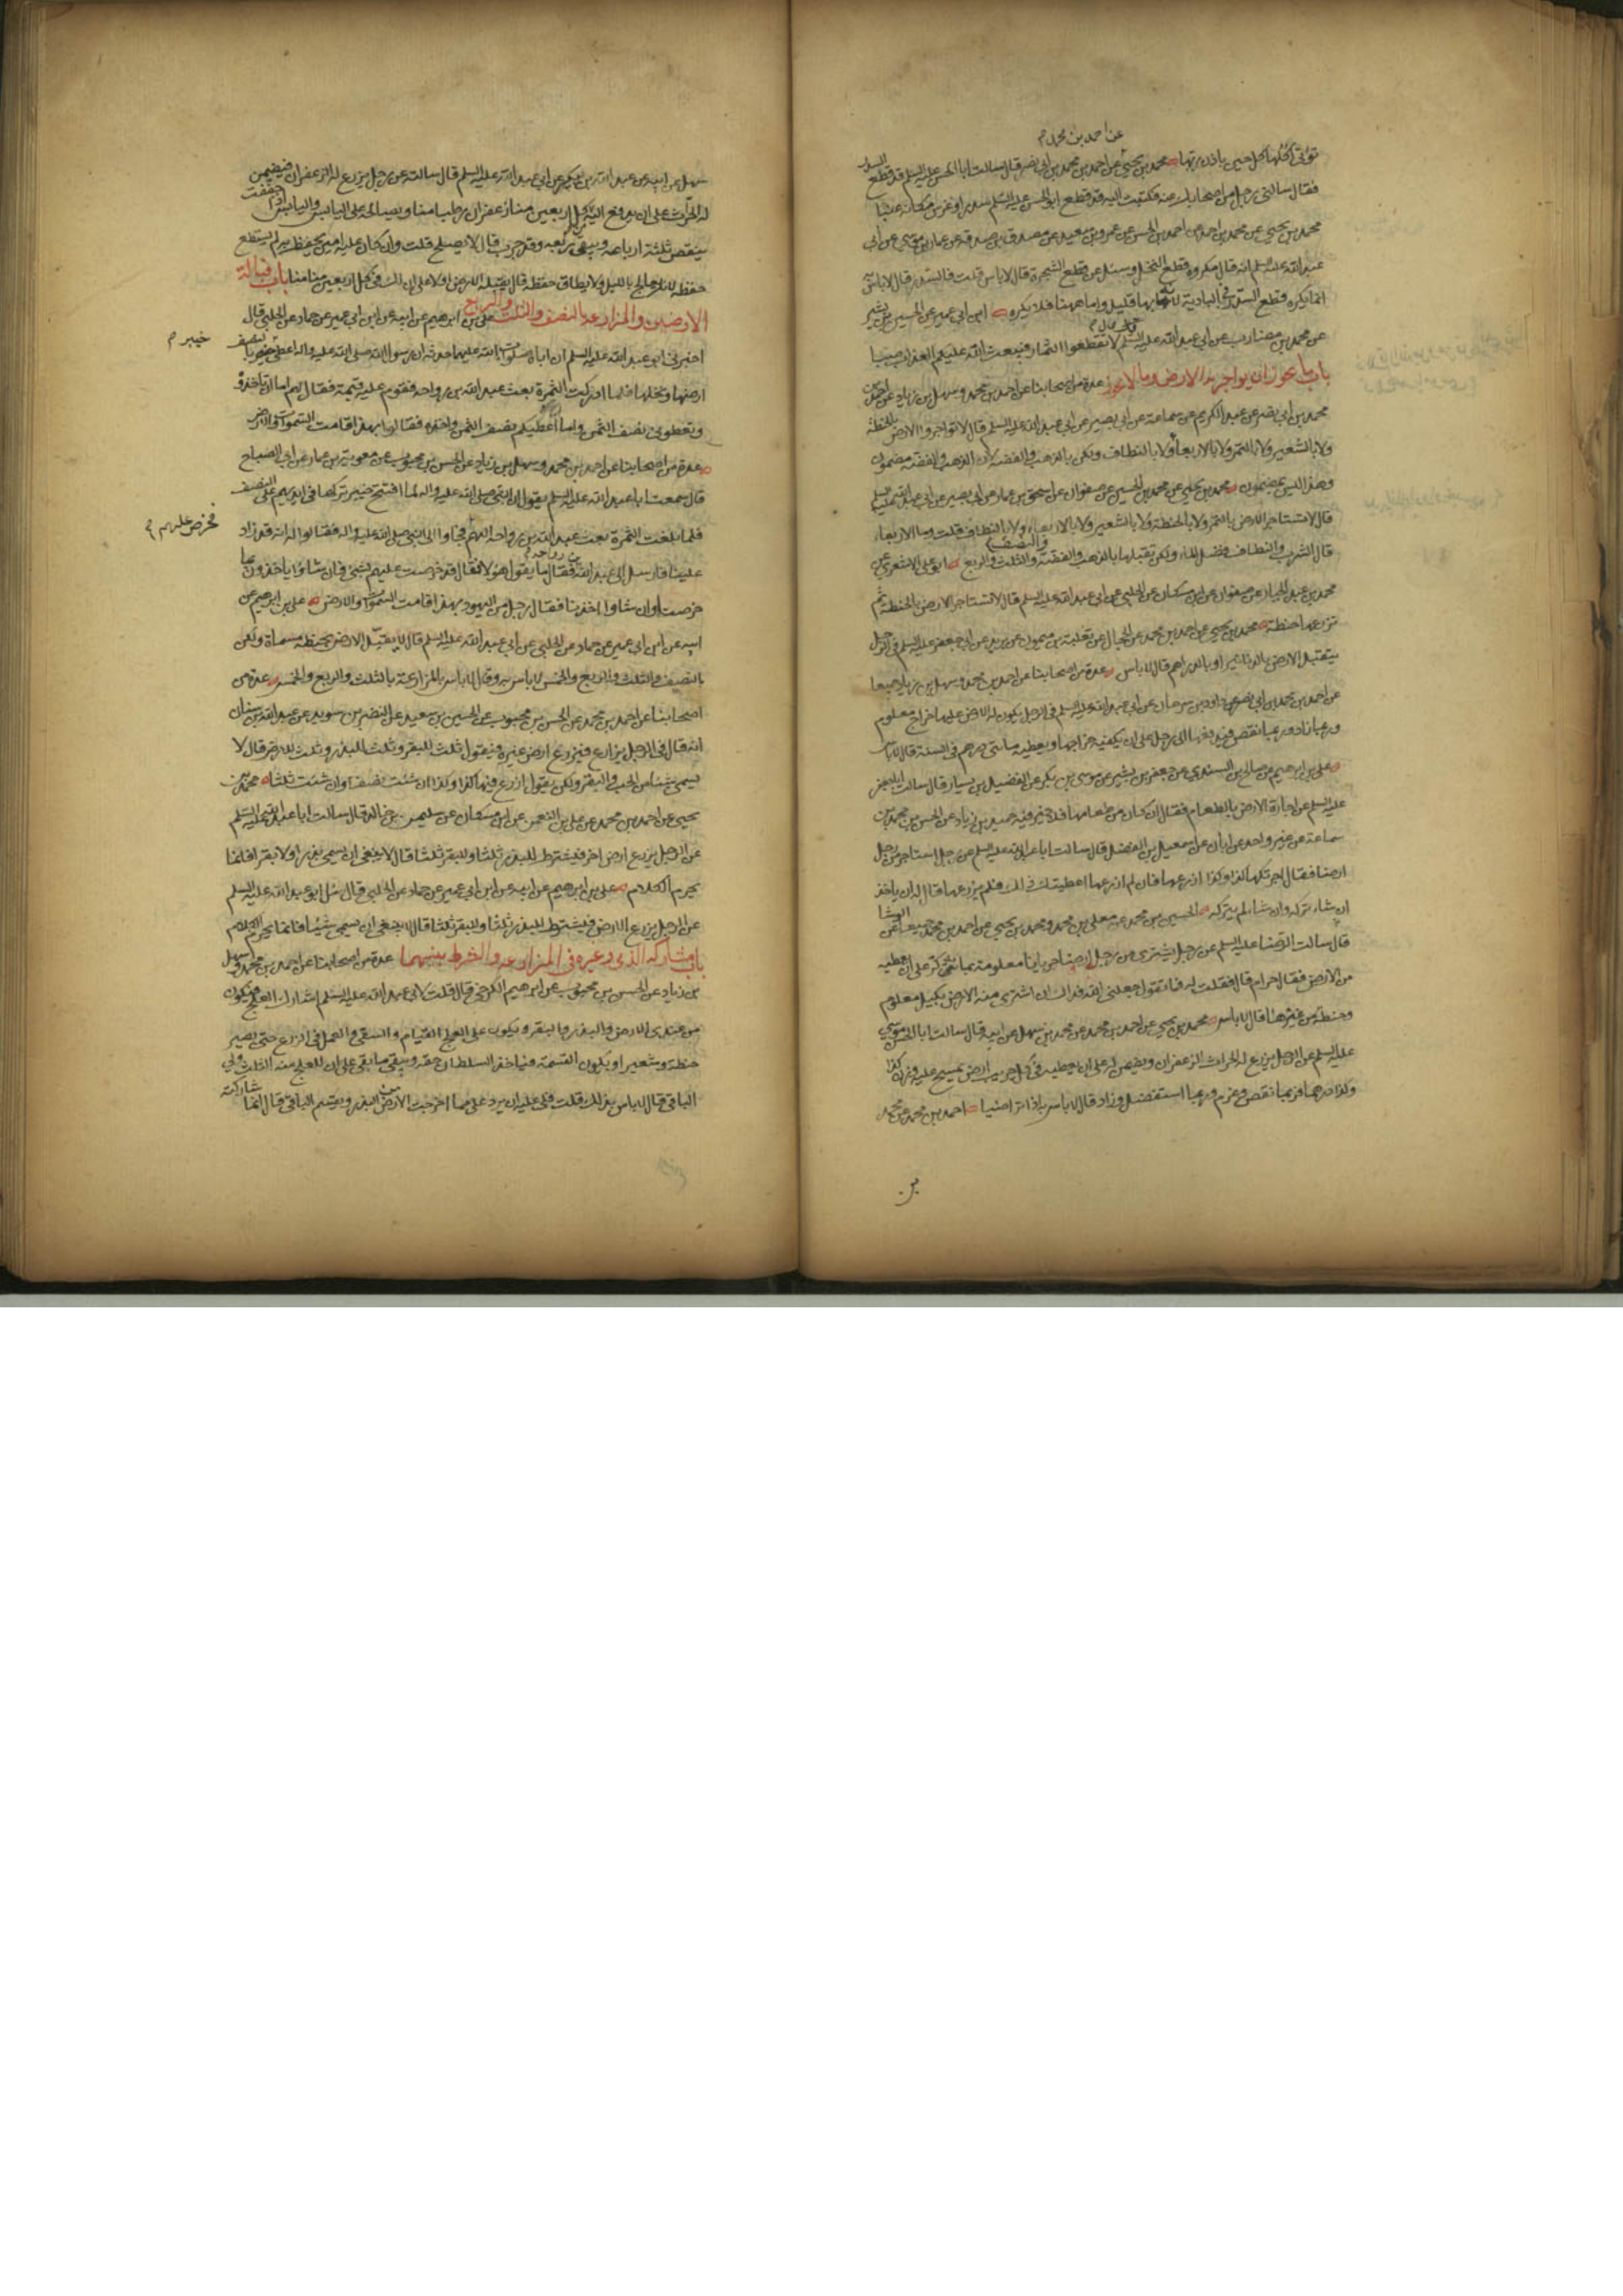 عن احمد بن محمد م
تؤتى اكلها كل حين باذن ربها محمد بن يحيى عن احمد بن محمد بن ابي نصر قال سالت ابا الحسن عليه السلم عن قطع السدر
فقال سالني رجل من اصحابك عنه فكتبت اليه قد قطع ابو الحسن عليه السلم سدرا وغرس مكانه عنبا
محمد بن يحيى عن محمد بن احمد عن احمد بن الحسن عن عمرو بن سعيد عن مصدق بن صدقه عن عمار بن موسى عن ابي
عبد الله عليه السلم انه قال مكروه قطع النخل وسئل عن قطع الشجرة قال لا باس قلت فالسدر قال لا باس
انما يكره قطع السدر في البادية لانه بها قليل واما ههنا فلا يكره ابن ابي عمير عن الحسين بن بشير
عن محمد بن مضارب عن ابي عبد الله عليه السلم قال لا تقطعوا الثمار فيبعث الله عليكم العذاب صبا
باب ما يجوز ان يواجر به الارض وما لا يجوز عدة من اصحابنا عن احمد بن محمد وسهل بن زياد عن احمد بن
محمد بن ابي نصر عن عبد الكريم عن سماعة عن ابي بصير عن ابي عبد الله عليه السلم قال لا تواجروا الارض بالحنطة
ولا بالشعير ولا بالتمر ولا بالاربعا ولا بالنطاف ولكن بالذهب والفضه لان الذهب والفضه مضمون
وهذا ليس بمضمون محمد بن يحيى عن محمد بن الحسين عن صفوان عن اسحق بن عمار عن ابي بصير عن ابي عبد الله عليه السلم
قال لا تستاجر الارض بالتمر ولا بالحنطة ولا بالشعير ولا بالاربعاء ولا بالنطاف قلت وما الاربعاء
قال الشرب والنطاف فضل الماء ولكن تقبلها بالذهب والفضة والنصف والثلث والربع ابو علي الاشعري عن
محمد بن عبد الجبار عن صفوان عن ابن مسكان عن الحلبي عن ابي عبد الله عليه السلم قال لا تستاجر الارض بالحنطة ثم
تزرعها حنطة محمد بن يحيى عن احمد بن محمد عن الحجال عن ثعلبة بن ميمون عن بريد عن ابي جعفر عليه السلم في الرجل
يتقبل الارض بالدنانير او بالدراهم قال لا باس عدة من اصحابنا عن احمد بن محمد وسهل بن زياد جميعا
عن احمد بن محمد بن ابي نصر عن داود بن سرحان عن ابي عبد الله عليه السلم في الرجل يكون له الارض عليها خراج معلوم
وربما زاد وربما نقص فيدفعها الى رجل على ان يكفيه خراجها ويعطيه مائتي درهم في السنة قال لا باس
علي بن ابرهيم عن صالح بن السندي عن جعفر بن بشير عن موسى بن بكر عن الفضيل بن يسار قال سالت ابا جعفر
عليه السلم عن اجارة الارض بالطعام فقال ان كان من طعامها فلا خير فيه حميد بن زياد عن الحسن بن محمد بن
سماعة عن غير واحد عن ابان عن اسمعيل بن الفضل قال سالت ابا عبد الله عليه السلم عن رجل استاجر من رجل
ارضا فقال اجرتكها كذا وكذا ان زرعها فان لم ازرعها اعطيتك ذلك فلم يزرعها قال له ان ياخذ
ان شاء تركه وان شاء لم يتركه الحسين بن محمد عن معلى بن محمد ومحمد بن يحيى عن احمد بن محمد جميعا عن الوشا
قال سالت الرضا عليه السلم عن رجل يشترى من رجل ارضا جربانا معلومة بمائة كر على ان يعطيه
من الارض فقال حرام قال فقلت له فما تقول جعلني الله فداك ان اشترى منه الارض بكيل معلوم
وحنطة من غيرها قال لا باس محمد بن يحيى عن احمد بن محمد عن محمد بن سهل عن ابيه قال سالت ابا الحسن موسى
عليه السلم عن الرجل يزرع له الحراث الزعفران ويضمن له على ان يعطيه في كل جريب ارض يمسح عليه وزن كذا
وكذا درهما فربما نقص وغرم وربما استفضل وزاد قال لا باس به اذا تراضيا احمد بن محمد عن محمد
بن
سهل عن ابيه عن عبد الله بن بكير عن ابي عبد الله عليه السلم قال سالته عن رجل يزرع له الزعفران فيضمن
له الحراث على ان يدفع اليه كل اربعين منا زعفران رطبا منا ويصالحه على اليابس واليابس اذا جففت
ينقص ثلثة ارباعه ويبقى ربعه وقد جرب قال لا يصلح قلت وان كان عليه امين يحفظ به لم يستطع
حفظه لانه يعالج بالليل ولا يطاق حفظه قال يقبله الارض اولا على ان لك في كل اربعين منا منا باب قبالة
الارضين والمزارعه بالنصف والثلث والربع علي بن ابرهيم عن ابيه عن ابن ابي عمير عن حماد عن الحلبي قال
اخبرني ابو عبد الله عليه السلم ان اباه صلوات الله عليهما حدثه ان رسول الله صلى الله عليه واله اعطى خيبر بالنصف
خيبر م
ارضها ونخلها فلما ادركت الثمرة بعث عبد الله بن رواحه فقوم عليه قيمة فقال لهم اما ان تاخذوه
وتعطوني نصف الثمن واما اعطيكم نصف الثمن واخذه فقالوا بهذا قامت السموات والارض
عدة من اصحابنا عن احمد بن محمد وسهل بن زياد عن الحسن بن محبوب عن معوية بن عمار عن ابي الصباح
قال سمعت ابا عبد الله عليه السلم يقول ان النبي صلى الله عليه واله لما افتتح خيبر تركها في ايديهم على النصف
فلما بلغت الثمرة بعث عبد الله بن رواحه اليهم فجاوا الى النبي صلى الله عليه واله فقالوا له انه قد زاد
فخرص عليهم م
علينا فارسل الى عبد الله بن رواحه فقال ما يقول هؤلا فقال قد خرصت عليهم بشئ فان شاؤا ياخذون بما
خرصت وان شاوا اخذنا فقال رجل من اليهود بهذا قامت السموات والارض علي بن ابرهيم عن
ابيه عن ابن ابي عمير عن حماد عن الحلبي عن ابي عبد الله عليه السلم قال لا يقبل الارض بحنطة مسماة ولكن
بالنصف والثلث والربع والخمس لا باس به وقال لا باس بالمزارعة بالثلث والربع والخمس عدة من
اصحابنا عن احمد بن محمد عن الحسن بن محبوب عن الحسين بن سعيد عن النضر بن سويد عن عبد الله بن سنان
انه قال في الرجل يزارع فيزرع ارض غيره فيقول ثلث للبقر وثلث للبذر وثلث للارض قال لا
يسمى شيئا من الحب والبقر ولكن يقول ازرع فيها كذا وكذا ان شئت نصف وان شئت ثلثا محمد بن
يحيى عن احمد بن محمد عن علي بن النعمن عن ابن مسكان عن سليمن بن خالد قال سالت ابا عبد الله عليه السلم
عن الرجل يزرع ارض اخر فيشترط للبذر ثلثا وللبقر ثلثا قال لا ينبغى ان يسمى بذرا ولا بقرا فانما
يحرم الكلام علي بن ابرهيم عن ابيه عن ابن ابي عمير عن حماد عن الحلبي قال سئل ابو عبد الله عليه السلم
عن الرجل يزرع الارض فيشترط للبذر ثلثا وللبقر ثلثا قال لا ينبغى ان يسمى شيئا فانما يحرم الكلام
باب مشاركة الذمي وغيره في المزارعه والشرط بينهما عدة من اصحابنا عن احمد بن محمد وسهل
بن زياد عن الحسن بن محبوب عن ابرهيم الكرخي قال قلت لابي عبد الله عليه السلم اشارك العلج فيكون
من عندى الارض والبذر والبقر ويكون على العلج القيام والسقى والعمل في الزرع حتى يصير
حنطة وشعيرا ويكون القسمة فياخذ السلطان حقه ويبقى ما بقى على ان للعلج منه الثلث ولي
الباقي قال لا باس بذلك قلت فلي عليه ان يرد علي مما اخرجت الارض من البذر ويقسم الباقي قال انما شاركته